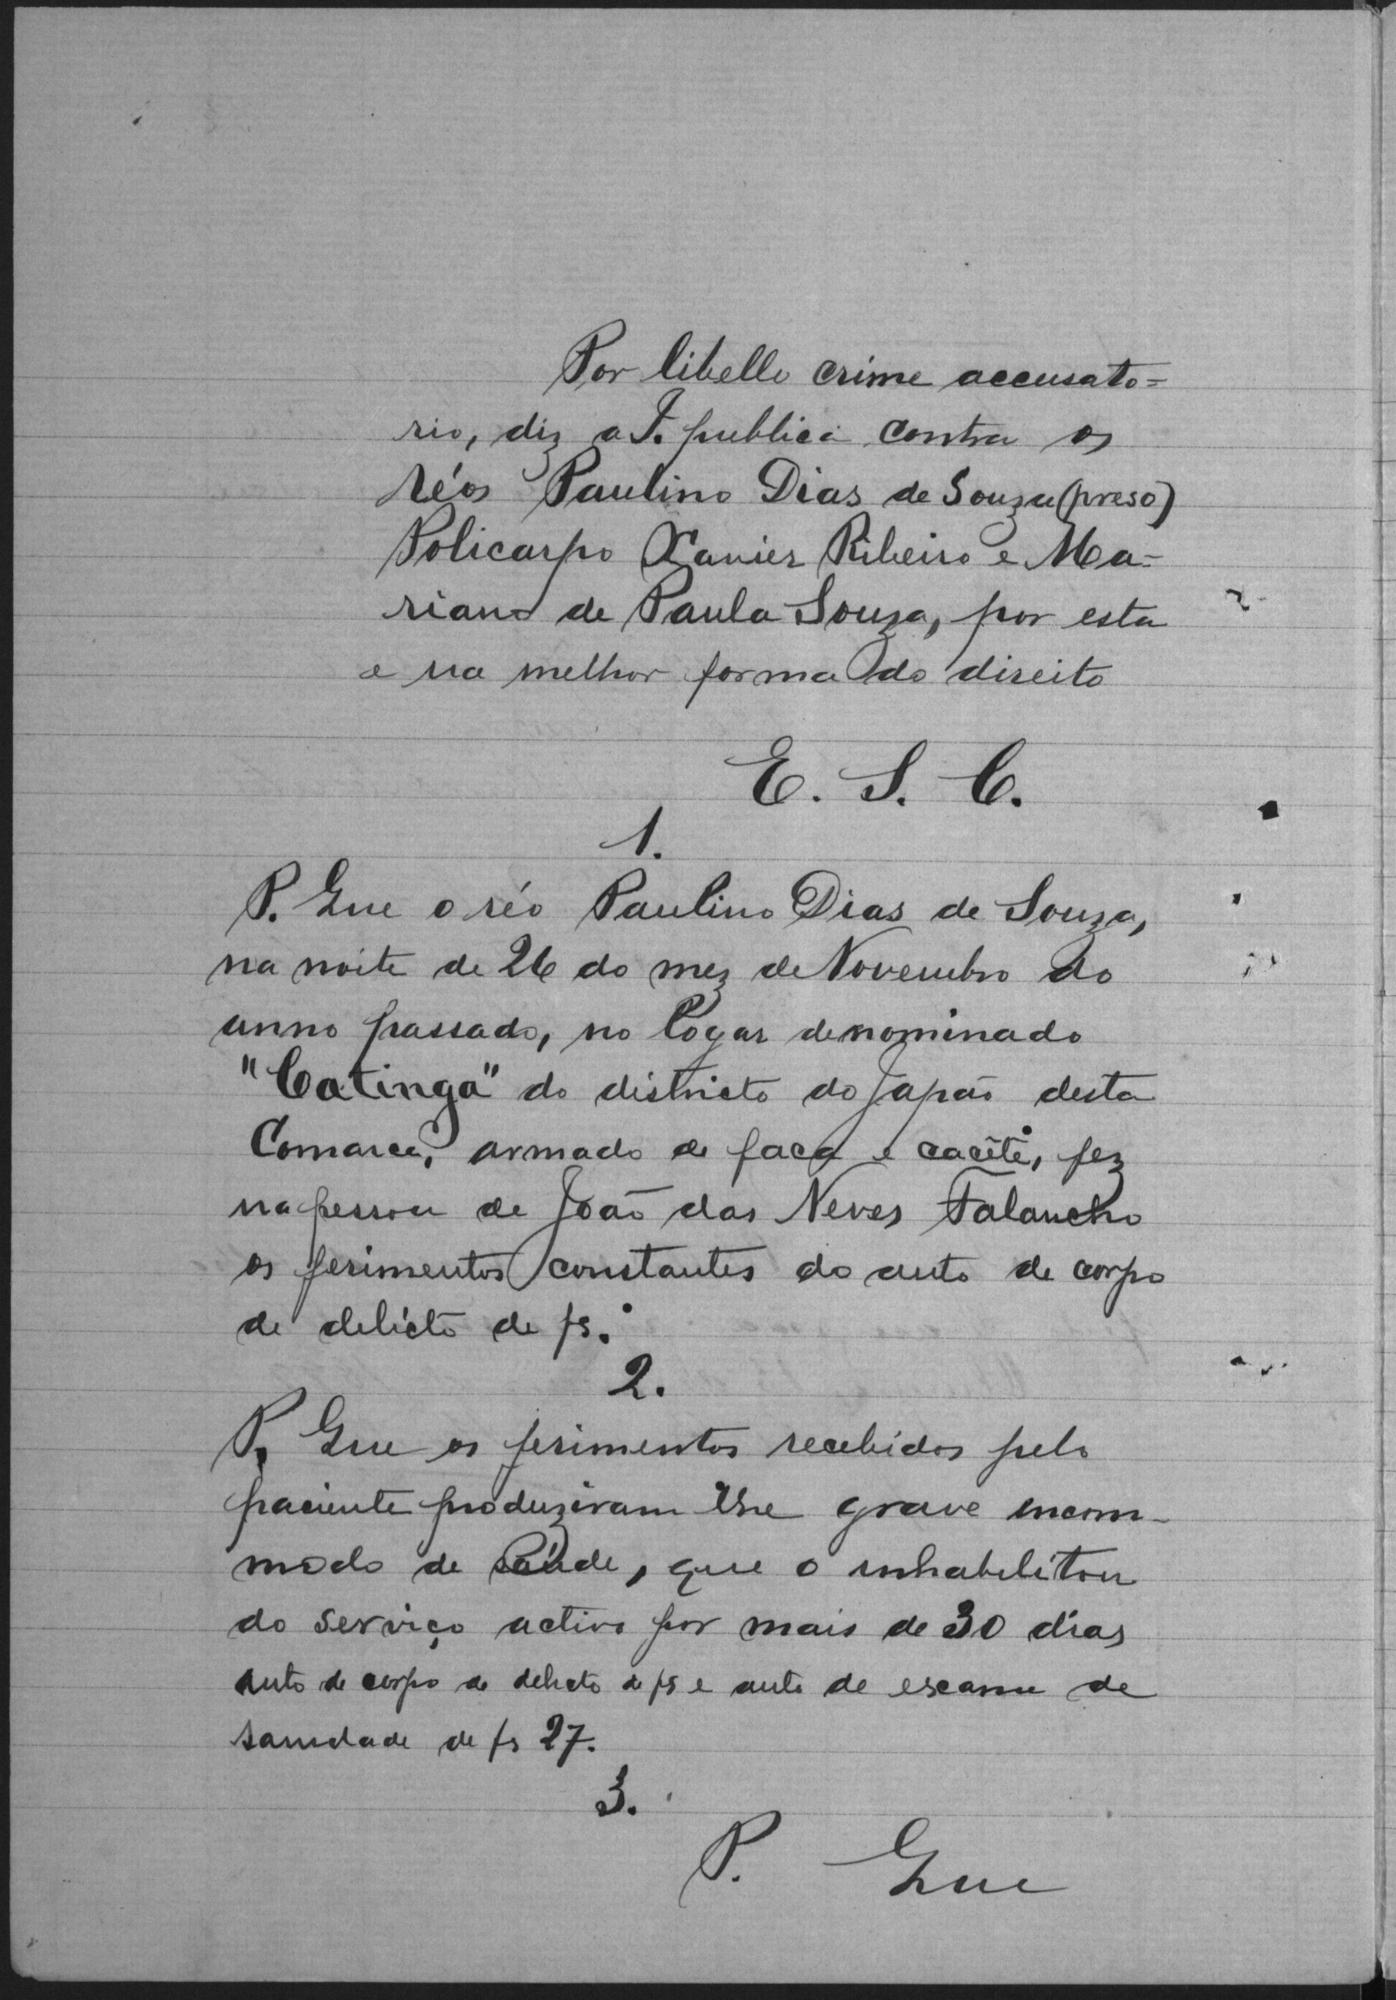 Por libello crime accusato=
rio, diz a J. publica contra os
réos Paulino Dias de Souza (preso)
Policarpo Xavier Ribeiro e Ma-
riano de Paula Souza, por esta
e na melhor forma do direito
E. S. C.
1.
P. Que o réo Paulino Dias de Souza,
na noite de 26 do mez de Novembro do
anno passado, no logar denominado
"Catinga" do districto do Japão desta
Comarca, armado de faca e cacête, fez
na pessoa de João das Neves Falancho
os ferimentos constantes do auto de corpo
de delicto de fs.
2.
P. Que os ferimentos recebidos pelo
paciente produziram lhe grave incom-
modo de saúde, que o inhabilitou
do serviço activo por mais de 30 dias
auto de corpo de delicto de fs e auto de escame de
sanidade de fs 27.
3.
P. Que